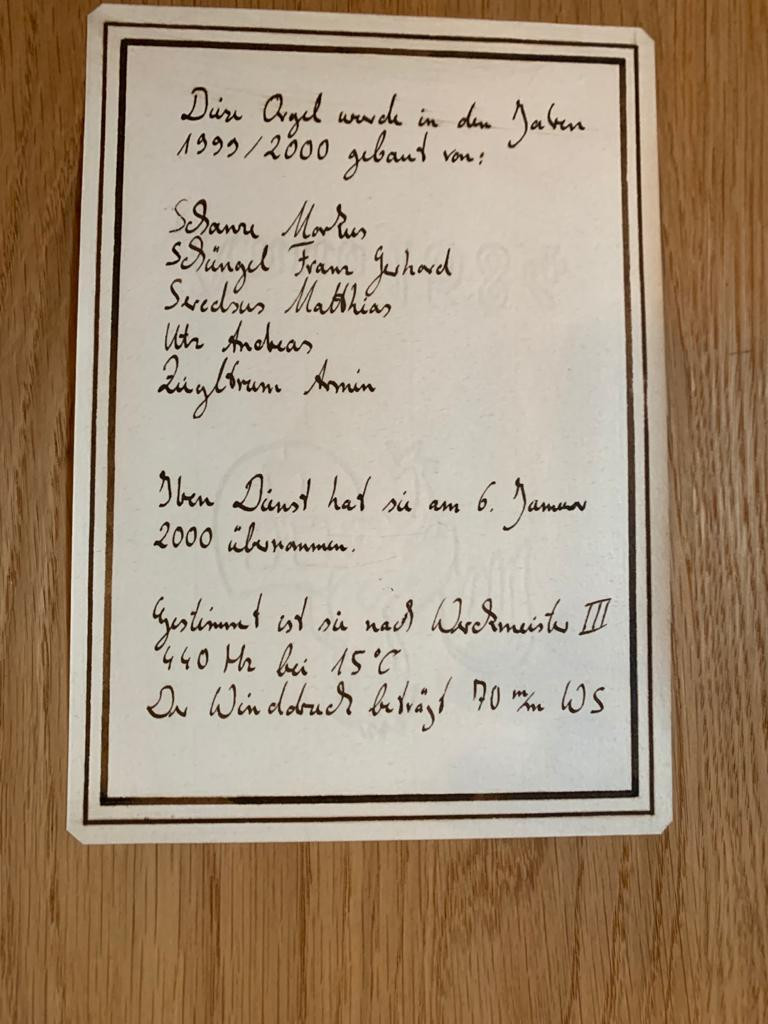 Diese Orgel wurde in den Jahren
1999/2000 gebaut von:
Schanze Markus
Schüngel Franz Gerhard
Matthias
Utz Andreas
Zieglt​rum Armin
Ihren Dienst hat sie am 6. Januar
2000 übernommen.
Gestimmt ist sie nach Werckmeister III
440 Hz bei 15°C
Der Winddruck beträgt 70 m/m WS